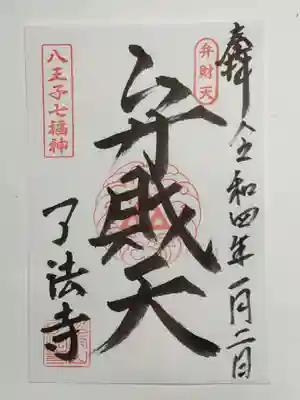 奉拝 令和四年一月二日
弁財天
弁財天
八王子七福神
了法寺